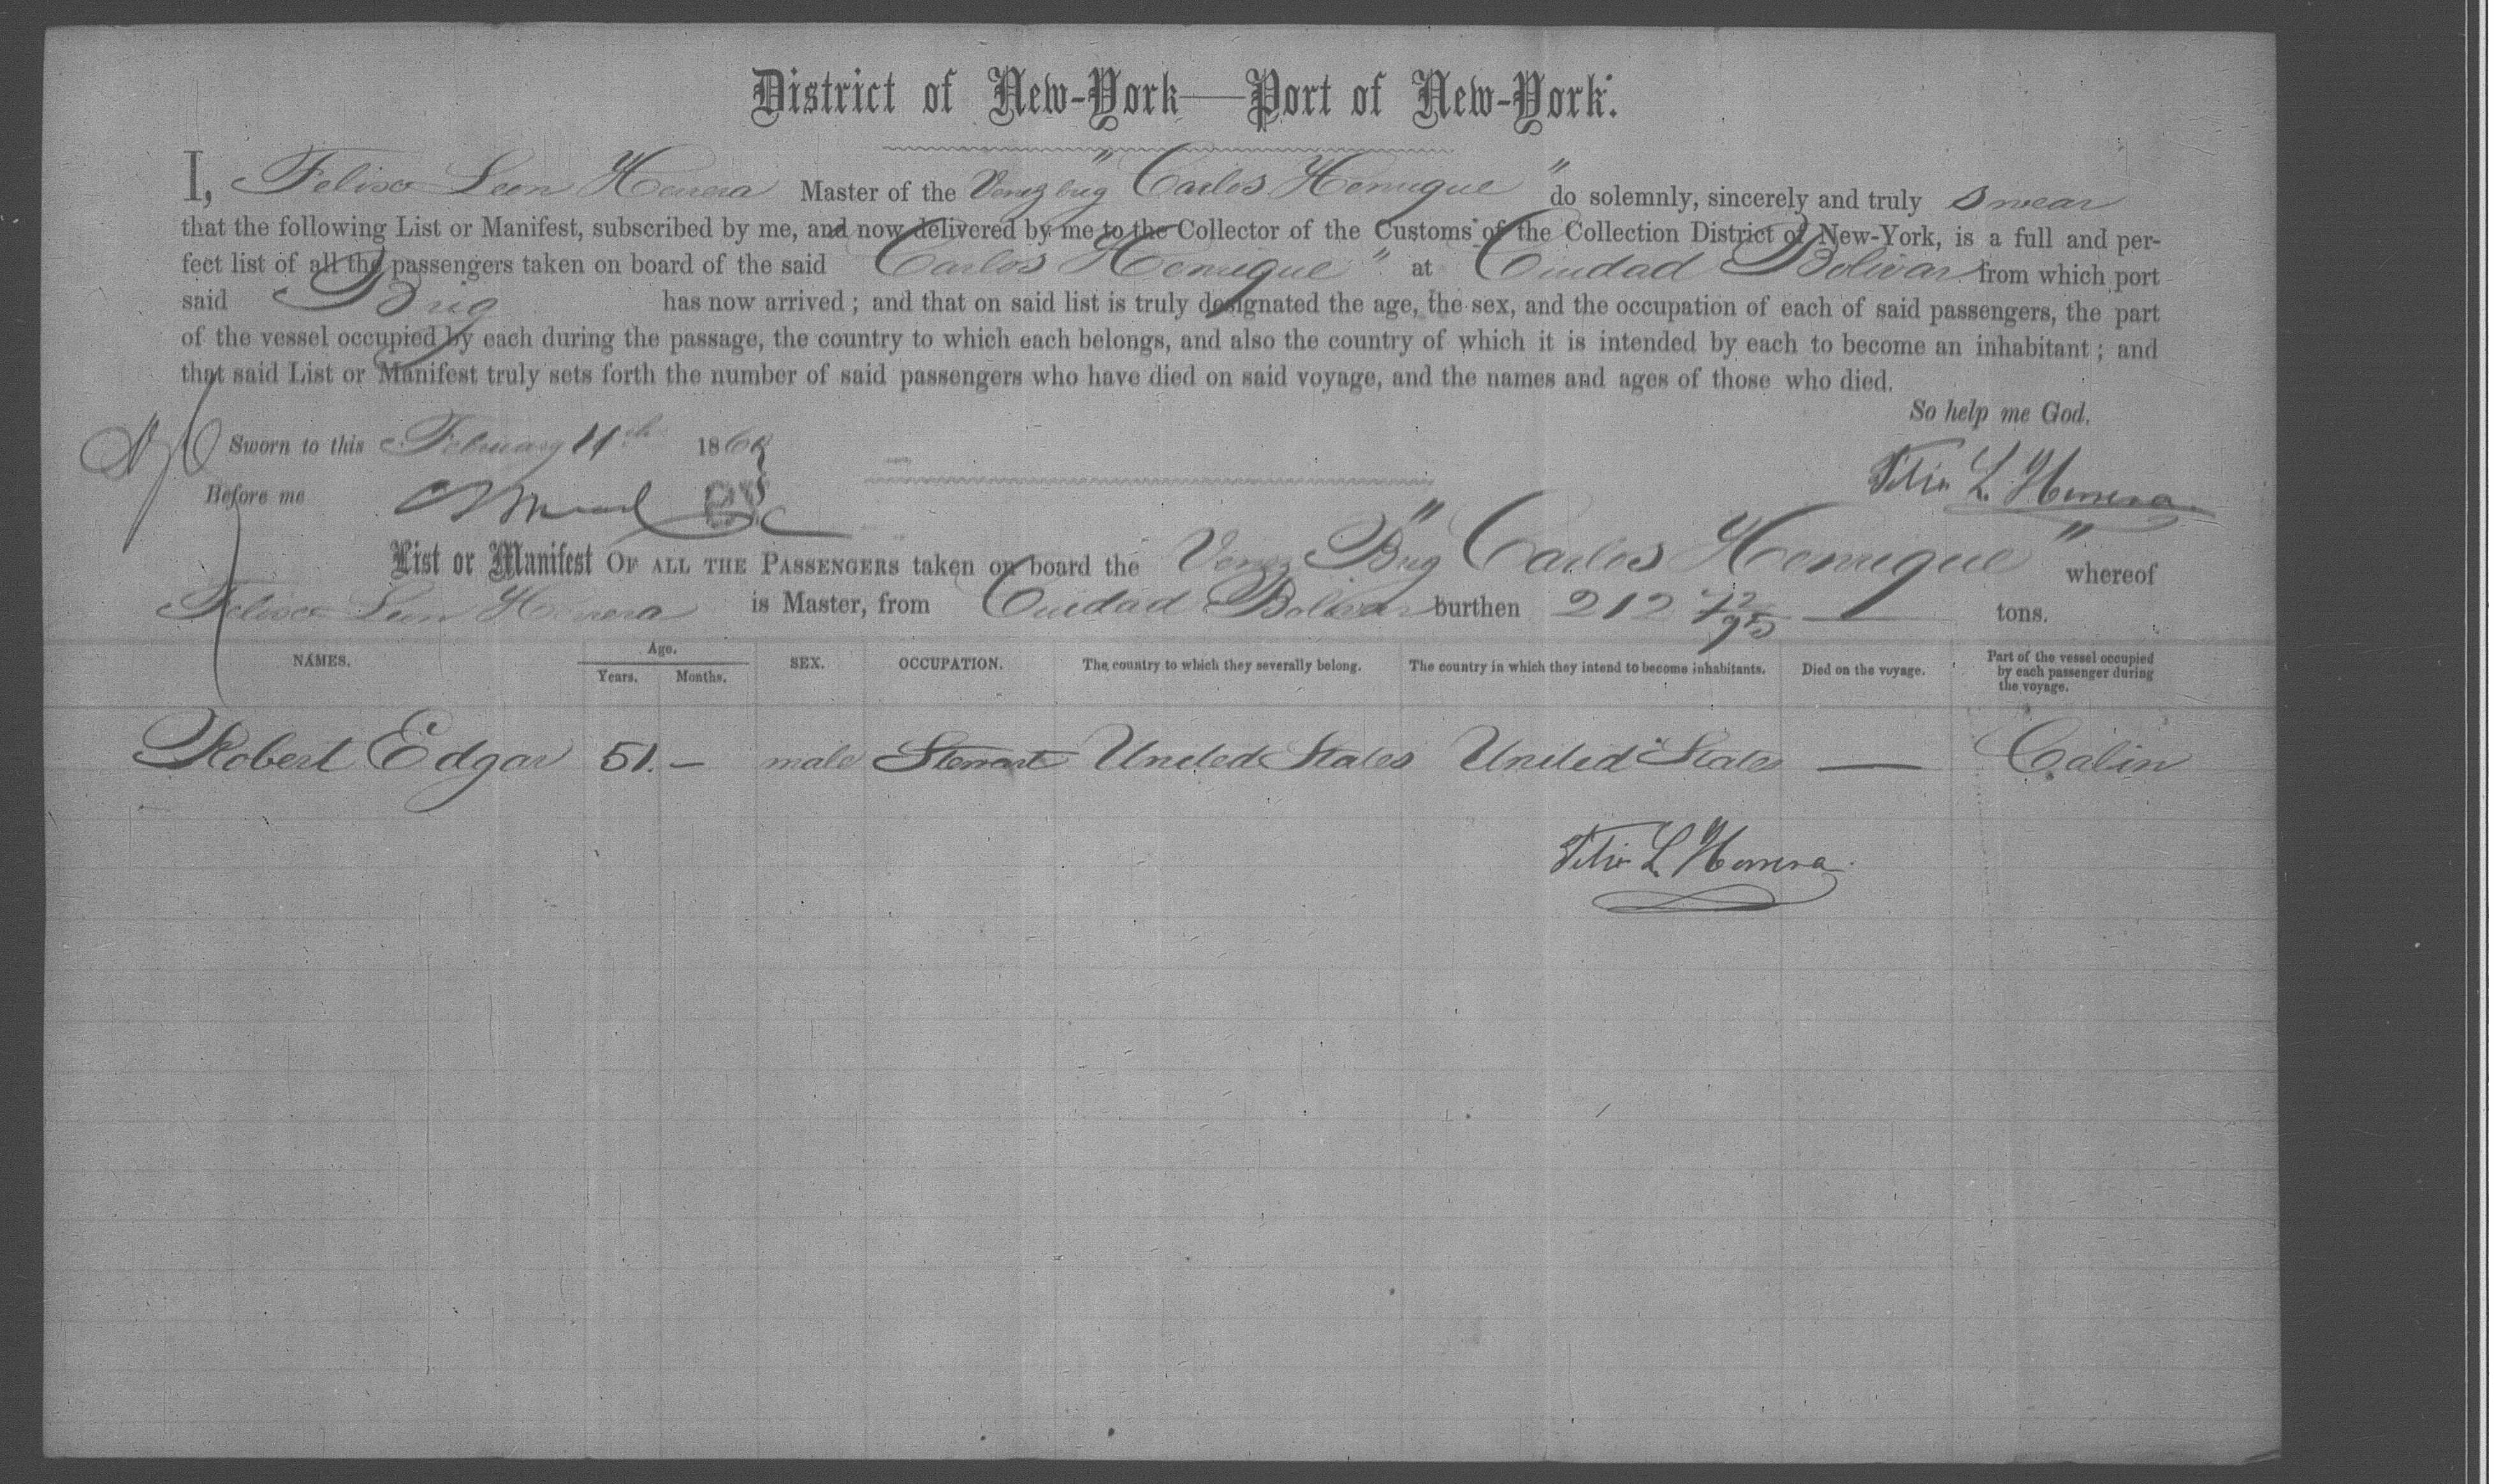 District of New-York—Port of New-York.
I, Felixo Leon Herrera Master of the Venez brig "Carlos Henrique" do solemnly, sincerely and truly swear
that the following List or Manifest, subscribed by me, and now delivered by me to the Collector of the Customs of the Collection District of New-York, is a full and per-
fect list of all the passengers taken on board of the said Carlos Henrique" at Ciudad Bolivar from which port
said Brig has now arrived; and that on said list is truly designated the age, the sex, and the occupation of each of said passengers, the part
of the vessel occupied by each during the passage, the country to which each belongs, and also the country of which it is intended by each to become an inhabitant; and
that said List or Manifest truly sets forth the number of said passengers who have died on said voyage, and the names and ages of those who died.
So help me God.
Sworn to this February 11th 186
Felix L. Herrera
Before me
List or Manifest OF ALL THE PASSENGERS taken on board the Venez Brig "Carlos Henrique" whereof
Felixo Leon Herrera is Master, from Ciudad Bolivar burthen 212 72/95 — tons.
NAMES. Age. Years. Months. SEX. OCCUPATION. The country to which they severally belong. The country in which they intend to become inhabitants. Died on the voyage. Part of the vessel occupied by each passenger during the voyage.
Robert Edgar 51. — male Stewart United States United States — Cabin
Felix L. Herrera